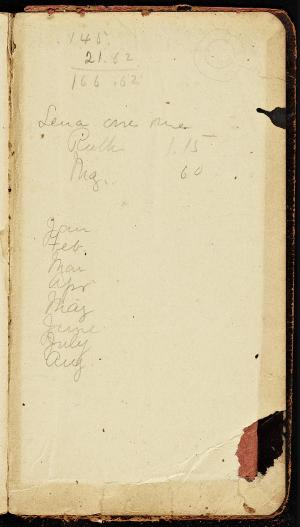 145.
21.62
166.62
Lena owes me
Ruth 1.15
Mg. 60
Jan
Feb.
Mar
Apr
May
June
July
Aug